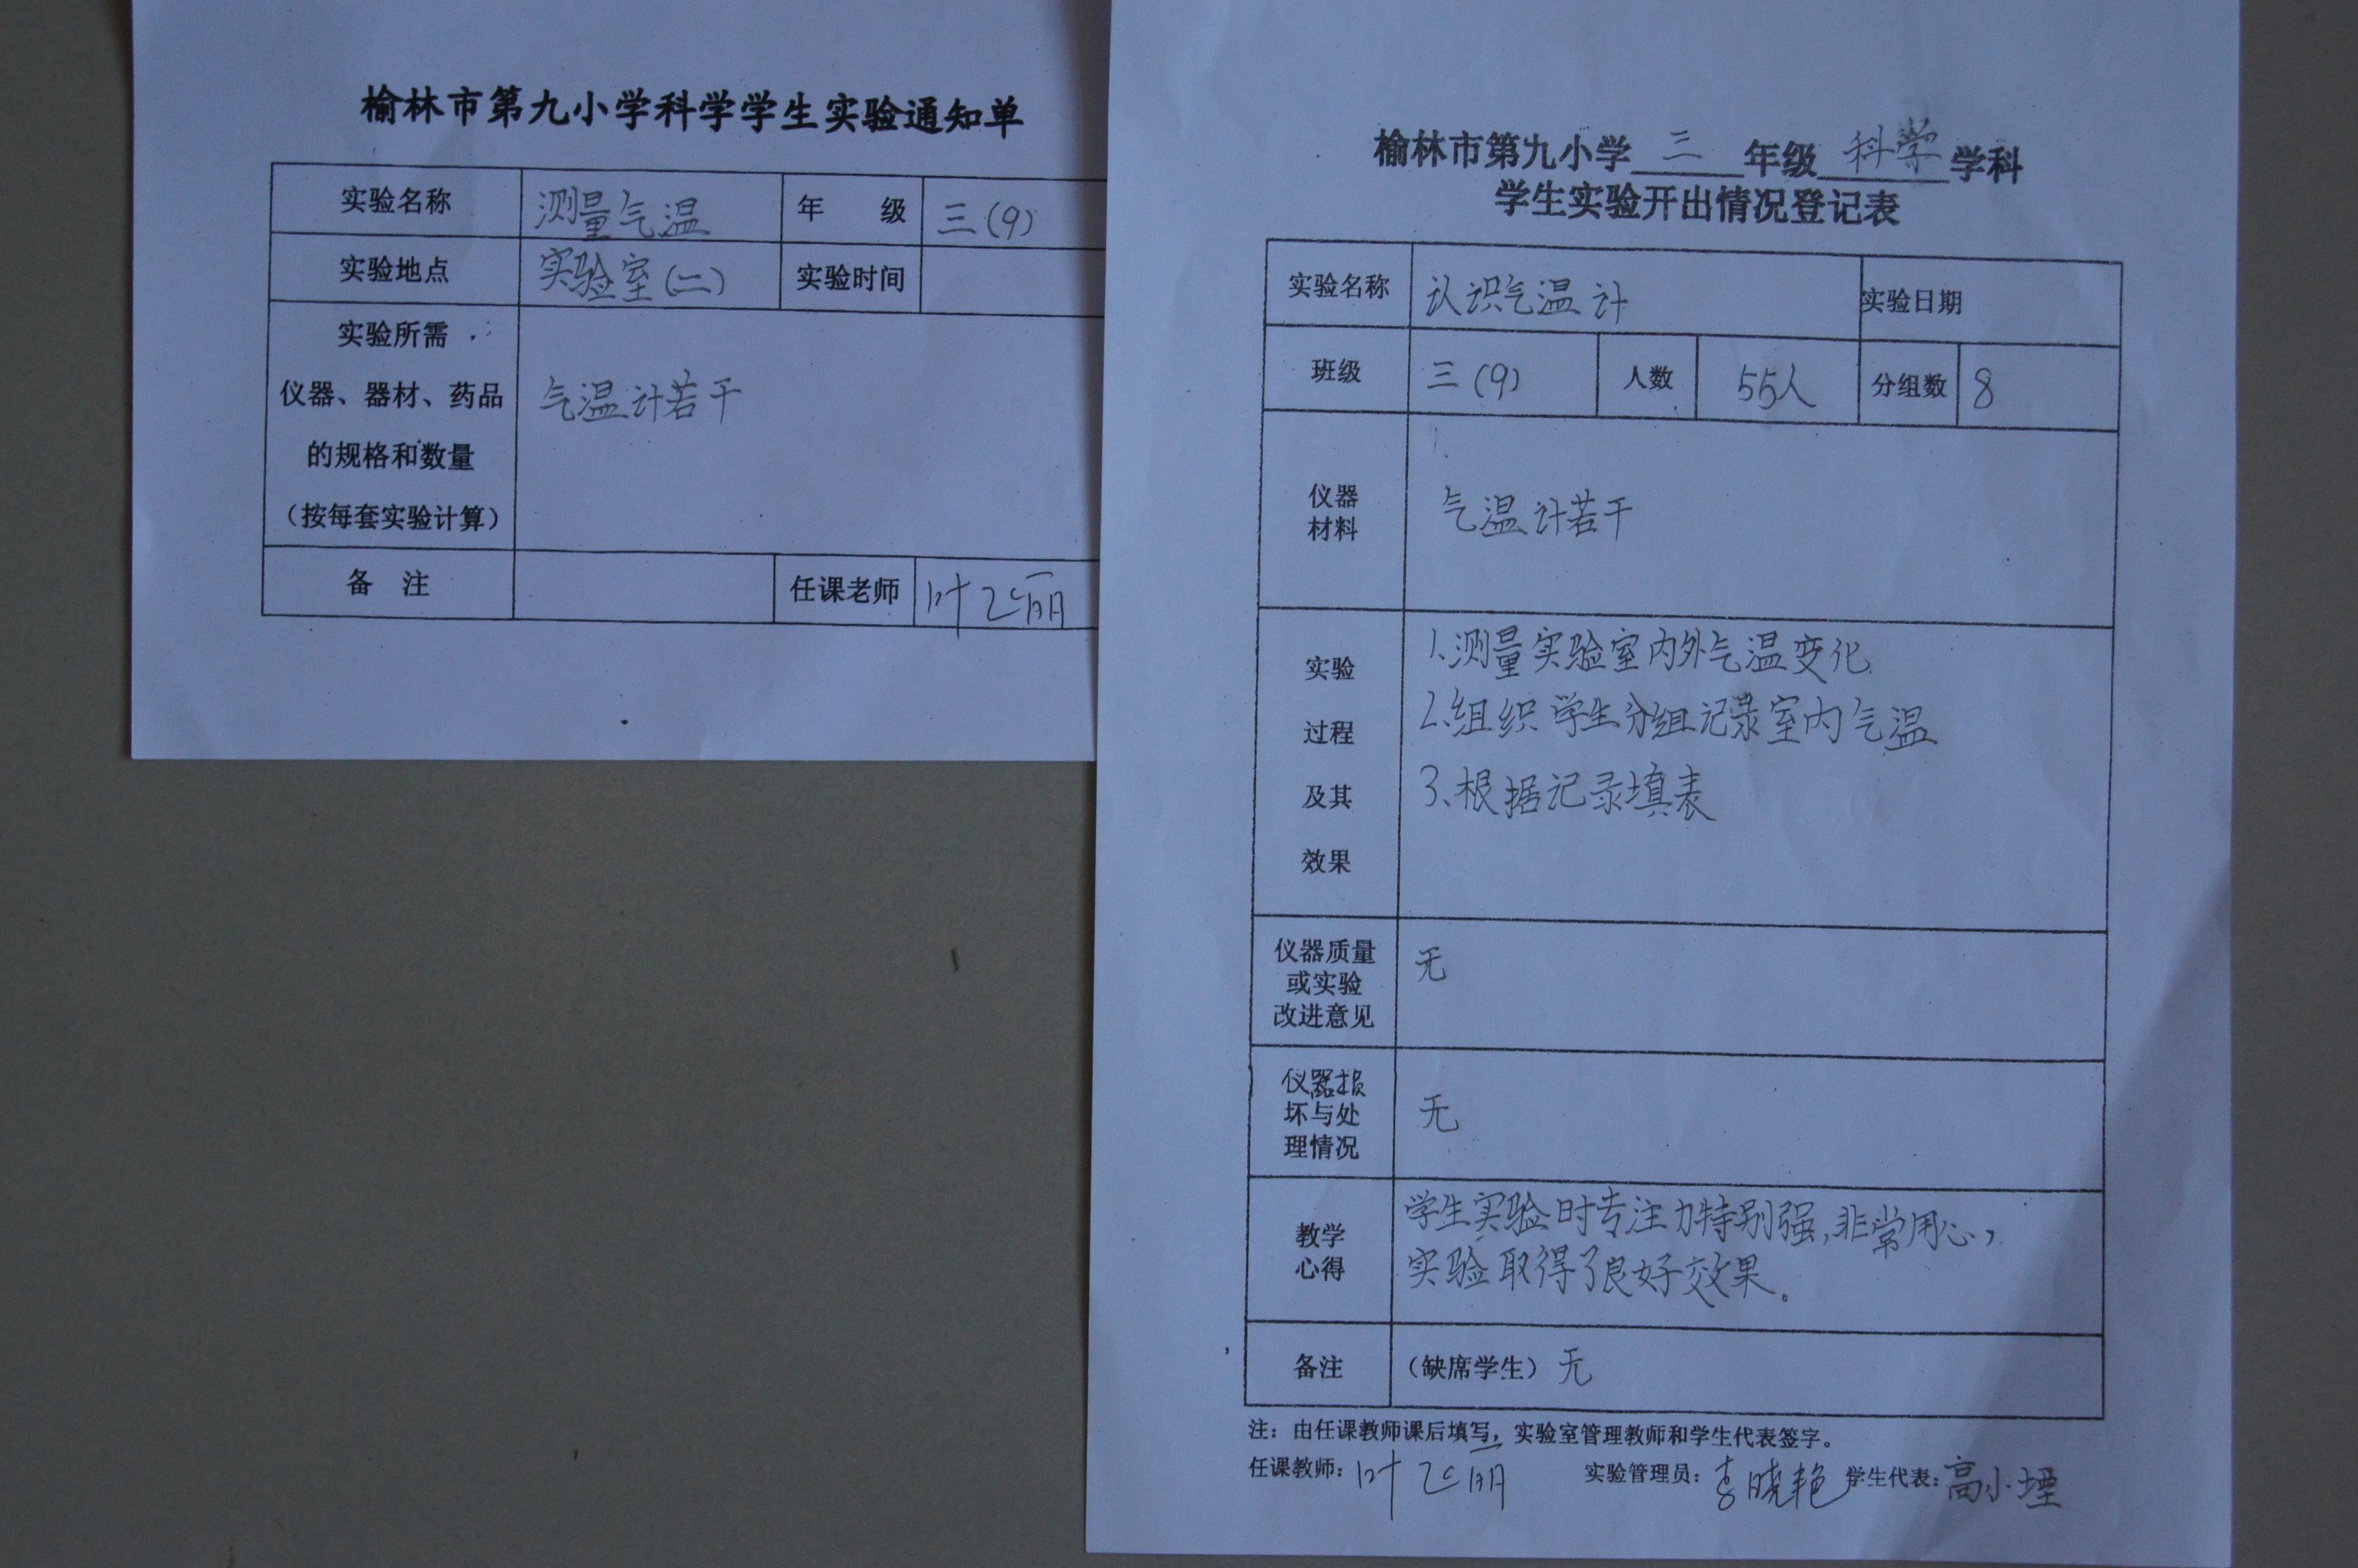 榆林市第九小学科学学生实验通知单
实验名称 测量气温 年 级 三(9)
实验地点 实验室(二) 实验时间
实验所需
仪器、器材、药品
的规格和数量
(按每套实验计算)
气温计若干
备 注 任课老师 叶
榆林市第九小学 三 年级 科学 学科
学生实验开出情况登记表
实验名称 认识气温计 实验日期
班级 三(9) 人数 55人 分组数 8
仪器
材料
气温计若干
实验
过程
及其
效果
1、测量实验室内外气温变化
2、组织学生分组记录室内气温
3、根据记录填表
仪器质量
或实验
改进意见
无
仪器损
坏与处
理情况
无
教学
心得
学生实验时专注力特别强,非常用心,
实验取得了良好效果。
备注 (缺席学生) 无
注:由任课教师课后填写,实验室管理教师和学生代表签字。
任课教师: 叶 实验管理员: 李晓艳 学生代表: 高小